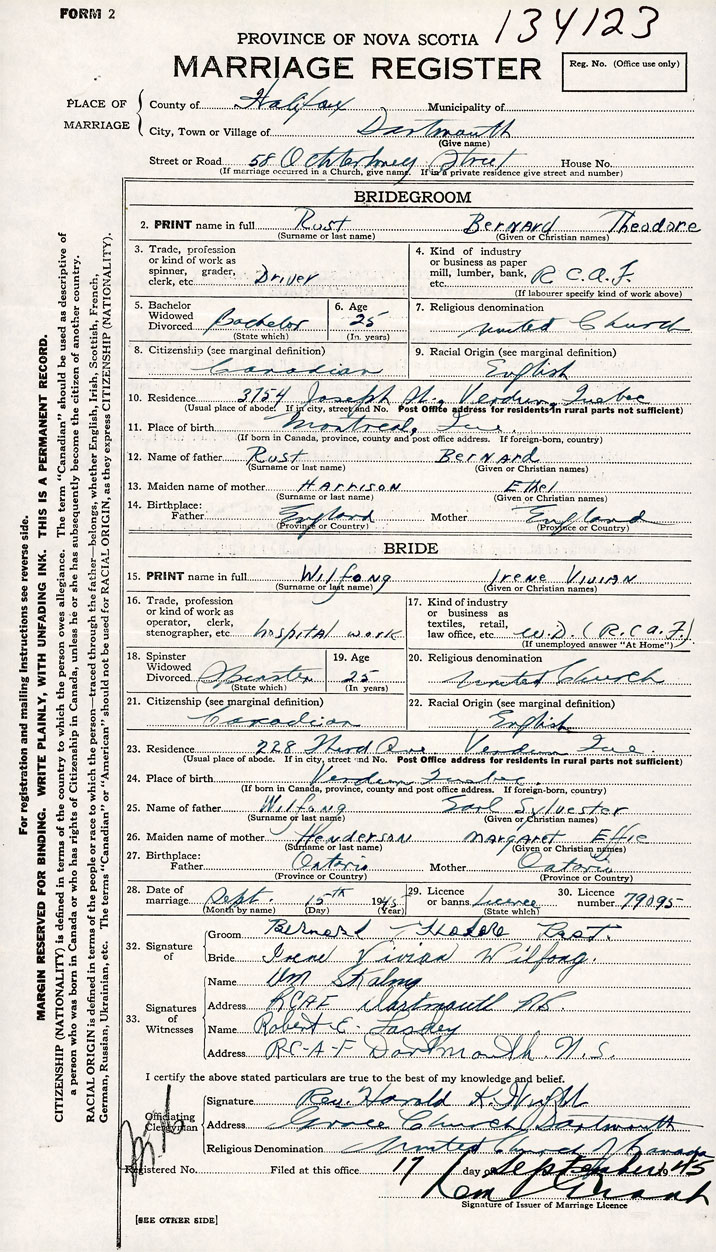 FORM 2
134123
PROVINCE OF NOVA SCOTIA
MARRIAGE REGISTER
Reg. No. (Office use only)
PLACE OF MARRIAGE
County of Halifax Municipality of
City, Town or Village of Dartmouth
(Give name)
Street or Road 58 Ochterloney Street House No.
(If marriage occurred in a Church, give name. If in a private residence give street and number)
BRIDEGROOM
2. PRINT name in full Rust BERNARD Theodore
(Surname or last name) (Given or Christian names)
3. Trade, profession or kind of work as spinner, grader, clerk, etc. Driver
4. Kind of industry or business as paper mill, lumber, bank, etc. R.C.A.F.
(If labourer specify kind of work above)
5. Bachelor Widowed Divorced Bachelor
(State which)
6. Age 25
(In years)
7. Religious denomination United Church
8. Citizenship (see marginal definition) Canadian
9. Racial Origin (see marginal definition) English
10. Residence 3754 Joseph St., Verdun, Quebec
(Usual place of abode. If in city, street and No. Post Office address for residents in rural parts not sufficient)
11. Place of birth Montreal, Que.
(If born in Canada, province, county and post office address. If foreign-born, country)
12. Name of father Rust BERNARD
(Surname or last name) (Given or Christian names)
13. Maiden name of mother HARRISON Ethel
(Surname or last name) (Given or Christian names)
14. Birthplace: Father England Mother England
(Province or Country) (Province or Country)
BRIDE
15. PRINT name in full Wilfong Irene Vivian
(Surname or last name) (Given or Christian names)
16. Trade, profession or kind of work as operator, clerk, stenographer, etc. hospital work
17. Kind of industry or business as textiles, retail, law office, etc. W.D. (R.C.A.F.)
(If unemployed answer "At Home")
18. Spinster Widowed Divorced Spinster
(State which)
19. Age 25
(In years)
20. Religious denomination United Church
21. Citizenship (see marginal definition) Canadian
22. Racial Origin (see marginal definition) English
23. Residence 228 Third Ave. Verdun Que.
(Usual place of abode. If in city, street and No. Post Office address for residents in rural parts not sufficient)
24. Place of birth Verdun Quebec.
(If born in Canada, province, county and post office address. If foreign-born, country)
25. Name of father Wilfong Earl Sylvester
(Surname or last name) (Given or Christian names)
26. Maiden name of mother Henderson Margaret Effie
(Surname or last name) (Given or Christian names)
27. Birthplace: Father Ontario Mother Ontario
(Province or Country) (Province or Country)
28. Date of marriage Sept. 15th 1945
(Month by name) (Day) (Year)
29. Licence or banns Licence
(State which)
30. Licence number 79095
32. Signature of
Groom Bernard Theodore Rust.
Bride Irene Vivian Wilfong.
33. Signatures of Witnesses
Name Wm
Address RCAF Dartmouth N.S.
Name Robert C.
Address R-C-A-F Dartmouth N.S.
I certify the above stated particulars are true to the best of my knowledge and belief.
Officiating Clergyman
Signature Rev. Harold K.
Address Grace Church, Dartmouth
Religious Denomination United Church of Canada
Registered No. Filed at this office 17 day of September 1945
Signature of Issuer of Marriage Licence
[SEE OTHER SIDE]
For registration and mailing instructions see reverse side.
MARGIN RESERVED FOR BINDING. WRITE PLAINLY, WITH UNFADING INK. THIS IS A PERMANENT RECORD.
CITIZENSHIP (NATIONALITY) is defined in terms of the country to which the person owes allegiance. The term "Canadian" should be used as descriptive of
a person who was born in Canada or who has rights of Citizenship in Canada, unless he or she has subsequently become the citizen of another country.
RACIAL ORIGIN is defined in terms of the people or race to which the person—traced through the father—belongs, whether English, Irish, Scottish, French,
German, Russian, Ukrainian, etc. The terms "Canadian" or "American" should not be used for RACIAL ORIGIN, as they express CITIZENSHIP (NATIONALITY).